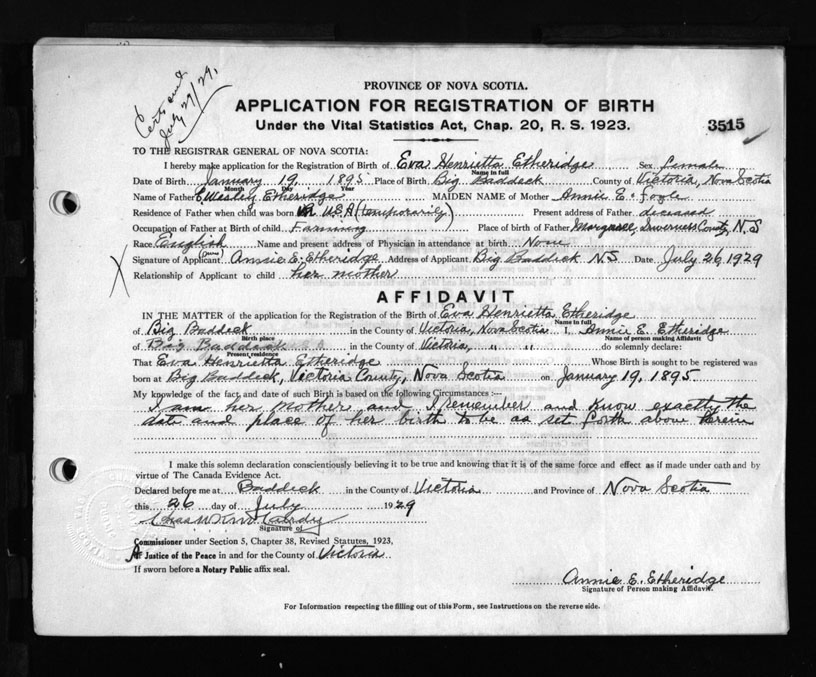 Cert sent
July 29/29.
PROVINCE OF NOVA SCOTIA.
APPLICATION FOR REGISTRATION OF BIRTH
Under the Vital Statistics Act, Chap. 20, R. S. 1923.
3515
TO THE REGISTRAR GENERAL OF NOVA SCOTIA:
I hereby make application for the Registration of Birth of Eva Henrietta Etheridge Sex female
Name in full
Date of Birth January 19, 1895 Place of Birth Big Baddeck County of Victoria, Nova Scotia
Month Day Year
Name of Father Wesley Etheridge MAIDEN NAME of Mother Annie E.
Residence of Father when child was born U.S.A (temporarily) Present address of Father deceased
Occupation of Father at Birth of child Farming Place of birth of Father Margaree, Inverness County, N.S
Race English Name and present address of Physician in attendance at birth None
Signature of Applicant Annie E. Etheridge Address of Applicant Big Baddeck N.S. Date July 26, 1929
Relationship of Applicant to child her mother
AFFIDAVIT
IN THE MATTER of the application for the Registration of Birth of Eva Henrietta Etheridge
Name in full
of Big Baddeck in the County of Victoria, Nova Scotia I, Annie E. Etheridge
Birth place Name of person making Affidavit
of Big Baddeck in the County of Victoria, " " do solemnly declare:
Present residence
That Eva Henrietta Etheridge Whose Birth is sought to be registered was
born at Big Baddeck, Victoria County, Nova Scotia on January 19, 1895
My knowledge of the fact and date of such Birth is based on the following Circumstances :—
I am her mother and I remember and know exactly the
date and place of her birth to be as set forth above herein
I make this solemn declaration conscientiously believing it to be true and knowing that it is of the same force and effect as if made under oath and by
virtue of The Canada Evidence Act.
Declared before me at Baddeck in the County of Victoria and Province of Nova Scotia
this 26 day of July 1929
Signature of
Commissioner under Section 5, Chapter 38, Revised Statutes, 1923,
A Justice of the Peace in and for the County of Victoria
If sworn before a Notary Public affix seal.
Annie E. Etheridge
Signature of Person making Affidavit.
For Information respecting the filling out of this Form, see Instructions on the reverse side.